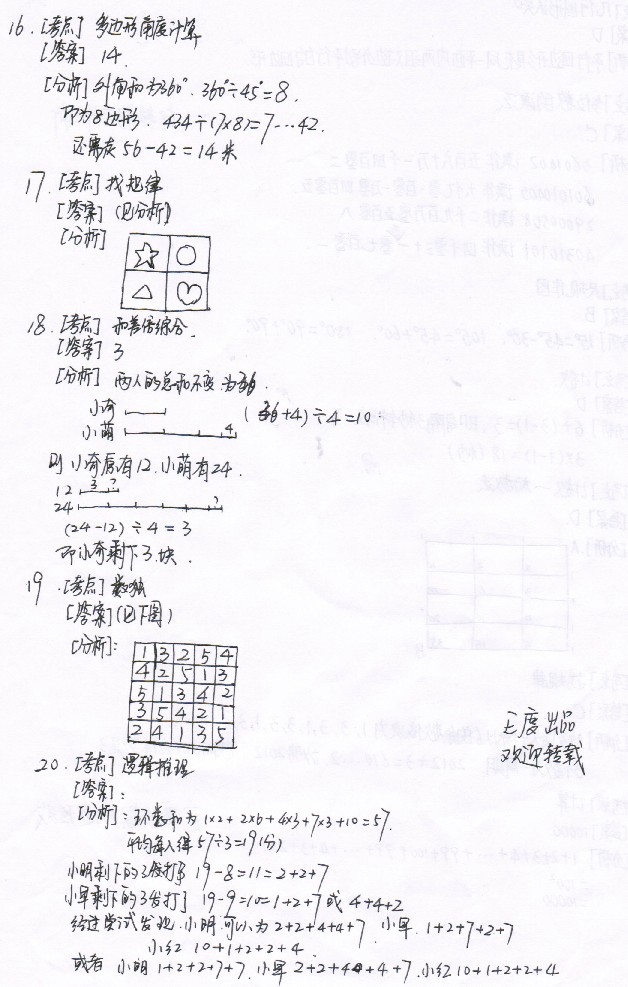 16. [考点] 多边形角度计算
[答案] 14.
[分析] 外角和为360°. 360°÷45°=8.
即为8边形. 434÷(7×8)=7…42.
还需走 56-42=14米
17. [考点] 找规律
[答案] (见分析)
[分析]
18. [考点] 和差倍综合.
[答案] 3
[分析] 两人的总和不变 为36.
小奇
小萌 4
(36+4)÷4=10.
则小奇原有12, 小萌有24.
12 3 ?
24 ?
(24-12)÷4=3
即小奇剩下3块.
19. [考点] 数独
[答案] (见下图)
[分析]:
1 3 2 5 4
4 2 5 1 3
5 1 3 4 2
3 5 4 2 1
2 4 1 3 5
王度出品
欢迎转载
20. [考点] 逻辑推理
[答案]:
[分析]: 环数和为 1×2+2×6+4×3+7×3+10=57.
平均每人得 57÷3=19(分)
小明剩下的3发打了 19-8=11=2+2+7
小军剩下的3发打了 19-9=10=1+2+7或4+4+2
经过尝试发现. 小明可以为 2+2+4+4+7. 小军. 1+2+7+2+7
小红 10+1+2+2+4.
或者 小明 1+2+2+7+7. 小军 2+2+4+4+7. 小红 10+1+2+2+4